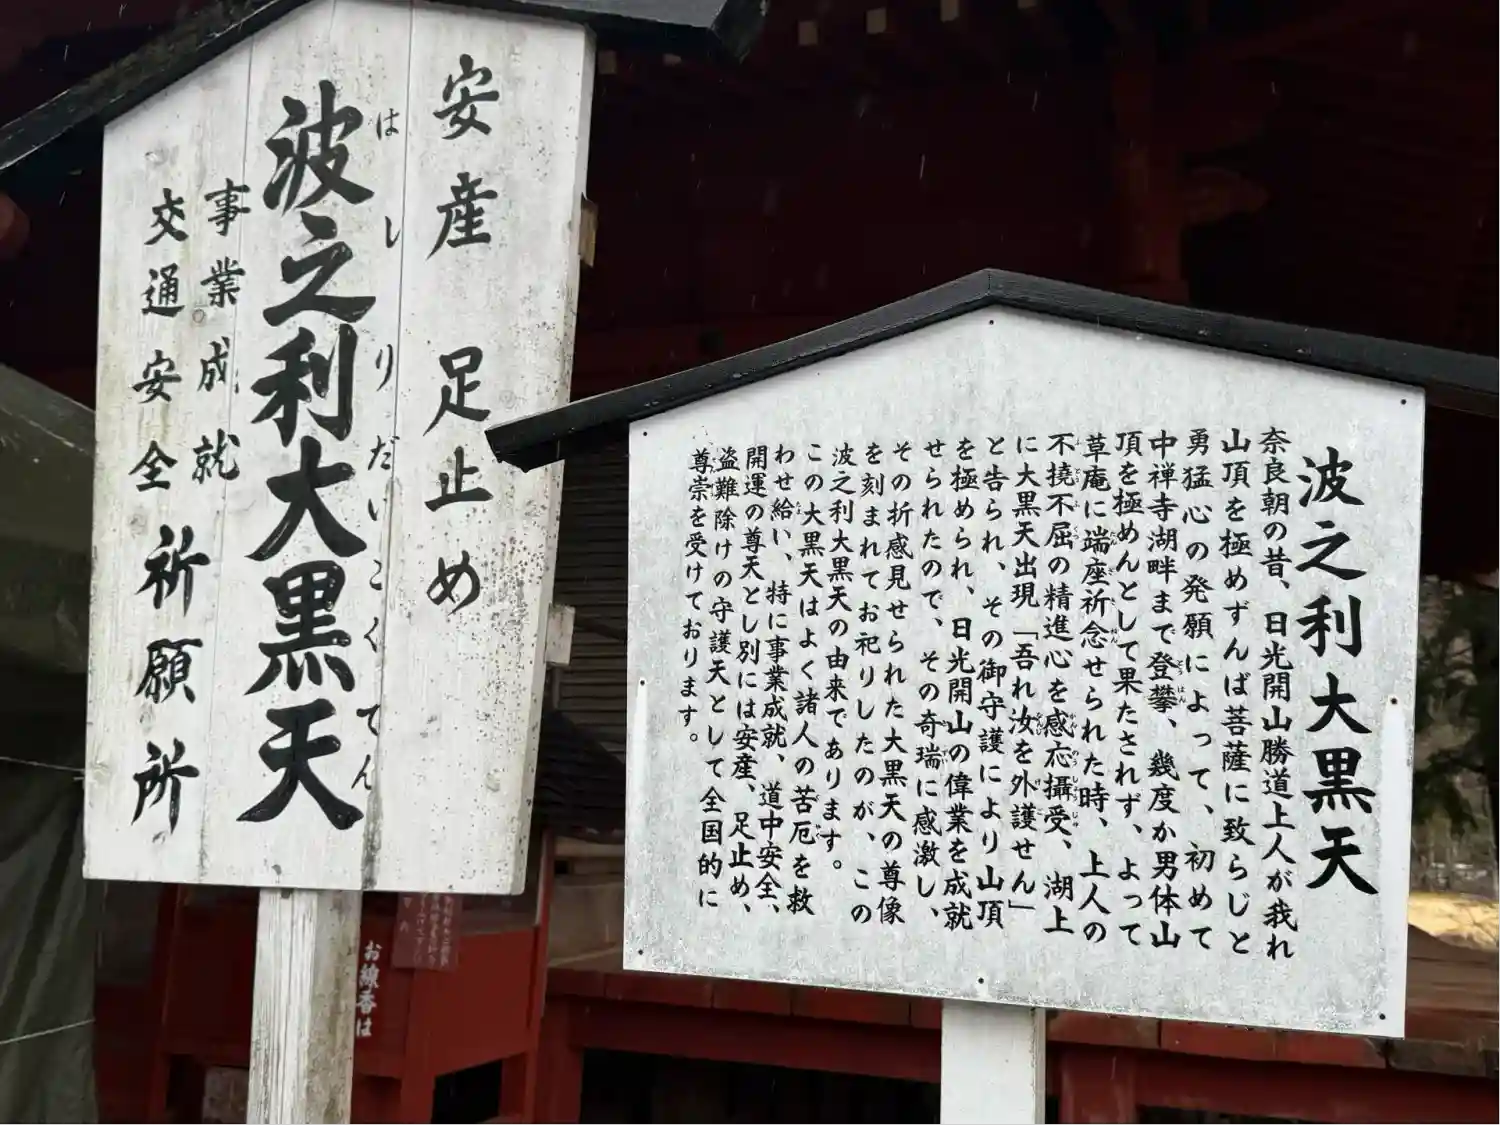 安産 足止め
波之利大黒天
はしりだいこくてん
事業成就
交通安全
祈願所
波之利大黒天
奈良朝の昔、日光開山勝道上人が我れ
山頂を極めずんば菩薩に致らじと
勇猛心の発願によって、初めて
中禅寺湖畔まで登攀、幾度か男体山
頂を極めんとして果たされず、よって
草庵に端座祈念せられた時、上人の
不撓不屈の精進心を感応攝受、湖上
に大黒天出現「吾れ汝を外護せん」
と告られ、その御守護により山頂
を極められ、日光開山の偉業を成就
せられたので、その奇瑞に感激し、
その折感見せられた大黒天の尊像
を刻まれてお祀りしたのが、この
波之利大黒天の由来であります。
この大黒天はよく諸人の苦厄を救
わせ給い、特に事業成就、道中安全、
開運の尊天とし別には安産、足止め、
盗難除けの守護天として全国的に
尊崇を受けております。
お線香は